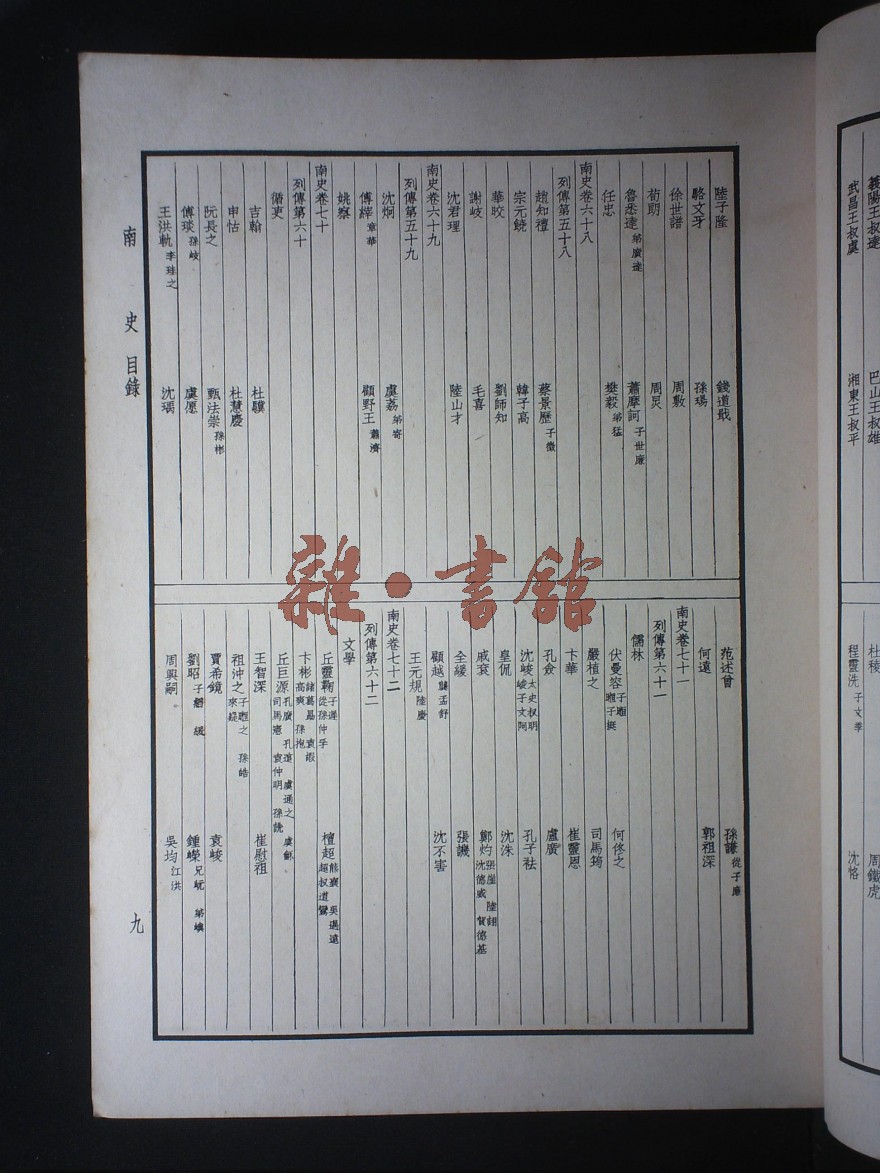 義陽王叔達 巴山王叔雄
武昌王叔虞 湘東王叔平
杜稜 周鐵虎
程靈洗 子文季 沈恪
陸子隆 錢道戢
駱文牙 孫瑒
徐世譜 周敷
荀朗 周炅
魯悉達 弟廣達 蕭摩訶 子世廉
任忠 樊毅 弟猛
南史卷六十八
列傳第五十八
趙知禮 蔡景歷 子徵
宗元饒 韓子高
華皎 劉師知
謝岐 毛喜
沈君理 陸山才
南史卷六十九
列傳第五十九
沈炯 虞荔 弟寄
傅縡 章華 顧野王 蕭濟
姚察
南史卷七十
列傳第六十
循吏
吉翰 杜驥
申恬 杜慧慶
阮長之 甄法崇 孫彬
傅琰 孫岐 虞愿
王洪軌 李珪之 沈瑀
范述曾 孫謙 從子廉
何遠 郭祖深
南史卷七十一
列傳第六十一
儒林
伏曼容 子暅 暅子挺 何佟之
嚴植之 司馬筠
卞華 崔靈恩
孔僉 盧廣
沈峻 太史叔明 峻子文阿 孔子祛
皇侃 沈洙
戚袞 鄭灼 張崖 陸詡 沈德威 賀德基
全緩 張譏
顧越 龔孟舒 沈不害
王元規 陸慶
南史卷七十二
列傳第六十二
文學
丘靈鞠 子遲 從孫仲孚 檀超 熊襄 吳邁遠 超叔道鸞
卞彬 諸葛勗 袁嘏 高爽 孫抱
丘巨源 孔廣 孔逭 虞通之 虞龢 司馬憲 袁仲明 孫詵
王智深 崔慰祖
祖沖之 子暅之 孫皓 來嶷
賈希鏡 袁峻
劉昭 子縚 緩 鍾嶸 兄岏 弟嶼
周興嗣 吳均 江洪
南史 目錄
九
雜·書館